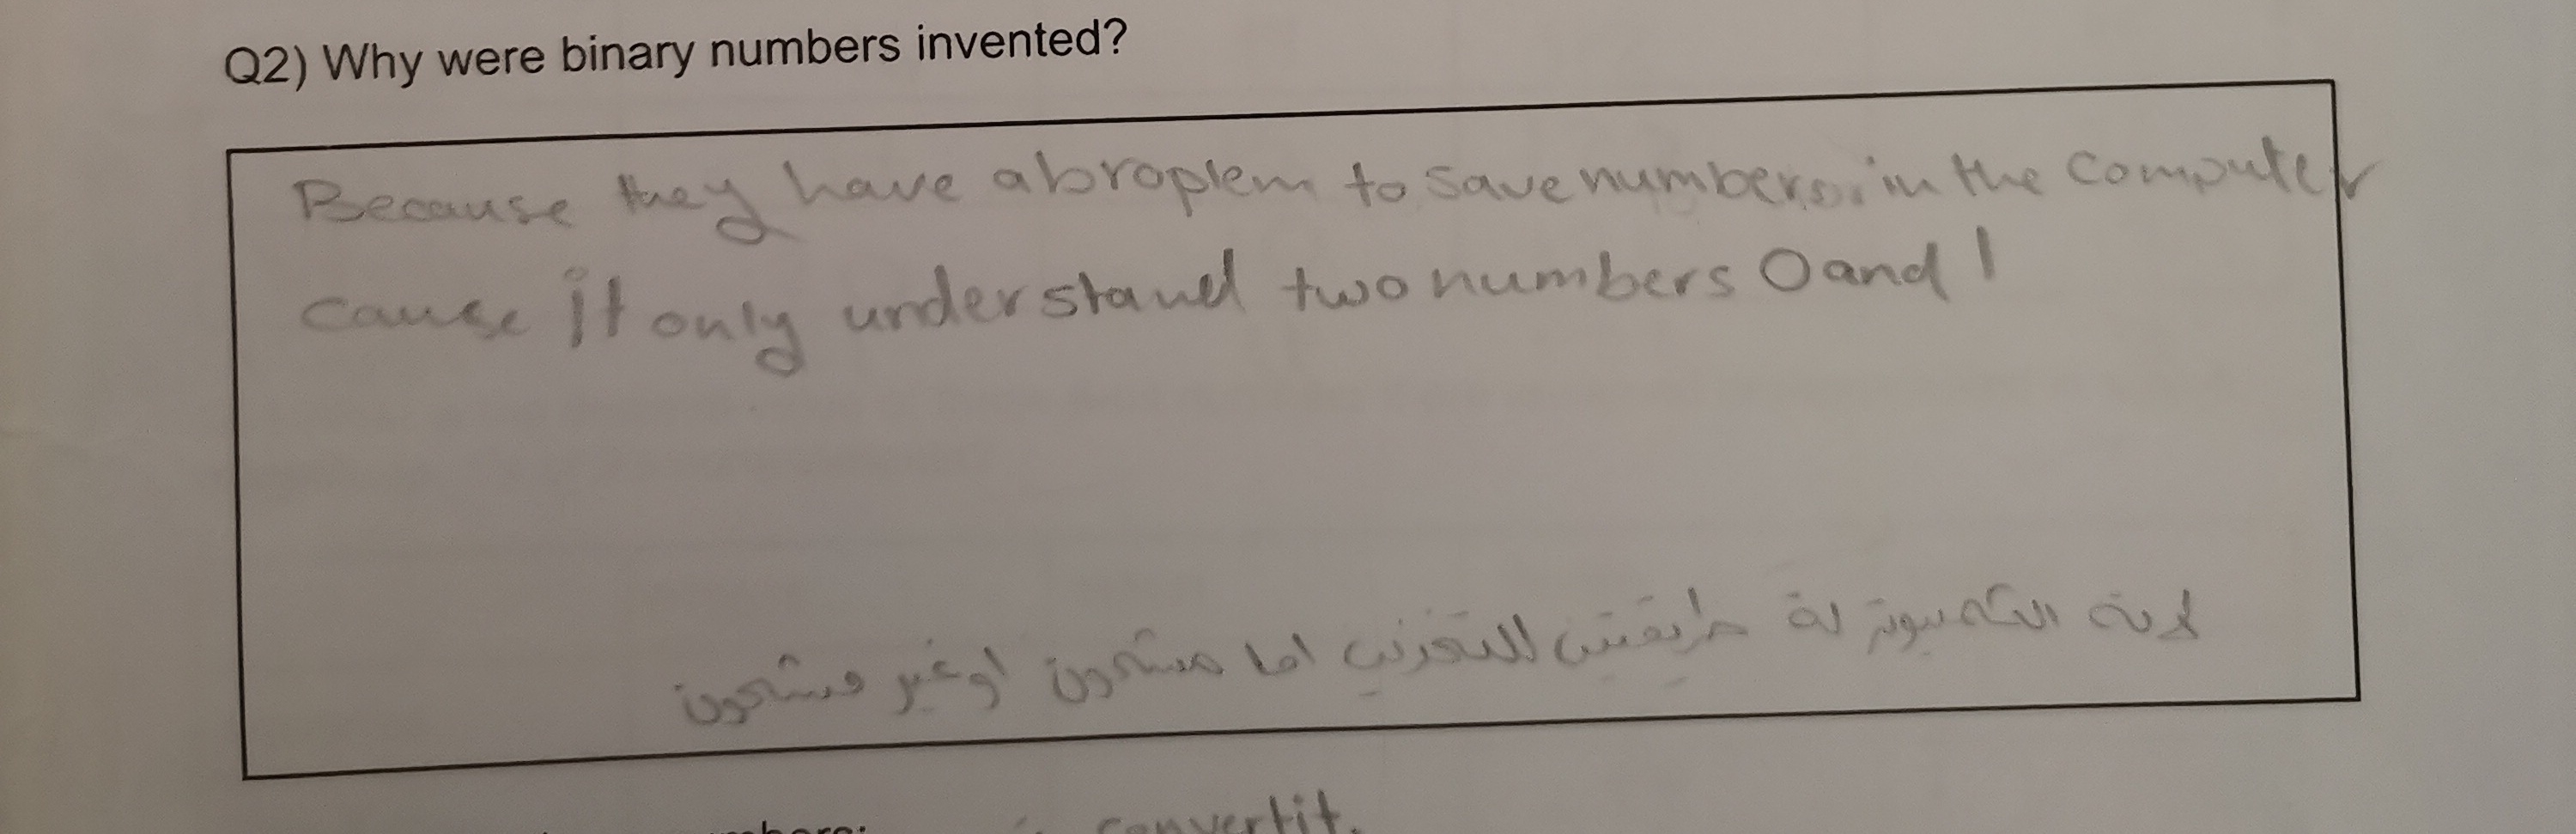 Q2) Why were binary numbers invented?
Because they have a broplem to save numbers in the computer
cause it only understand two numbers 0 and 1
لانة الكمبيوتر لة طريقتين للتخزين اما مشحون او غير مشحون
convert it.